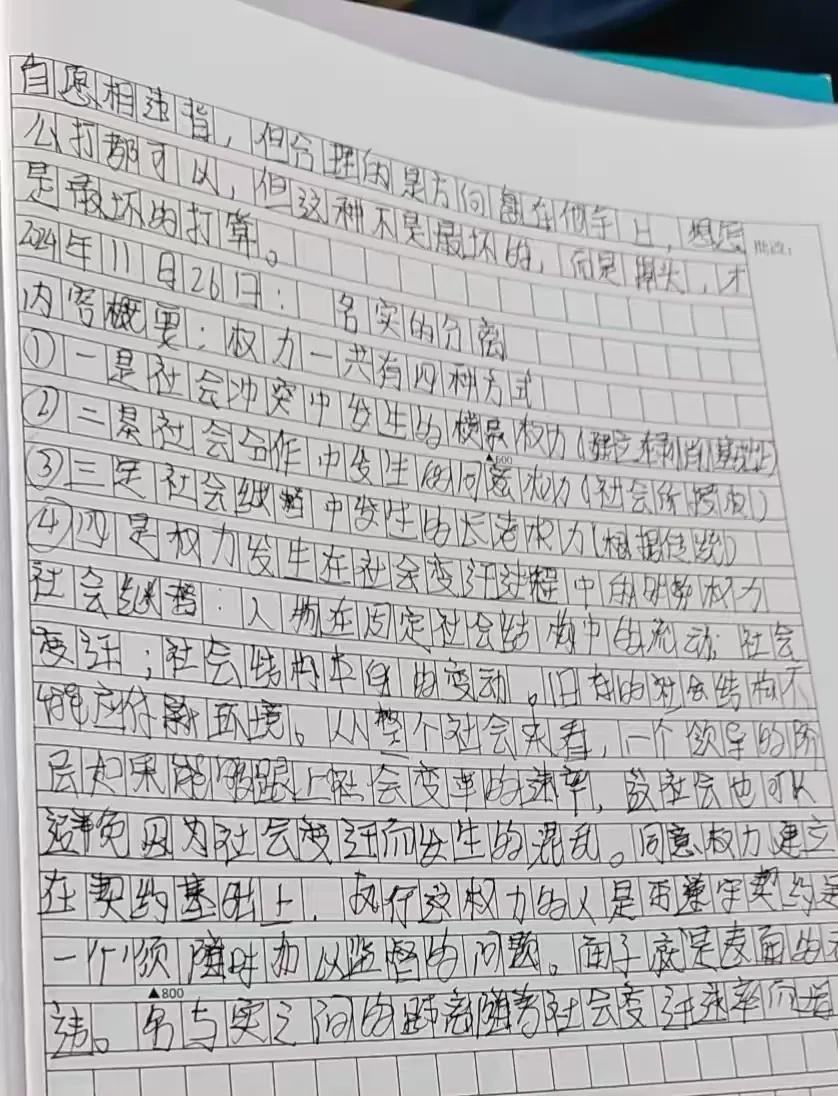 自愿相违背，但合理的是方向盘在他手上，想怎
么打都可以，但这种不是最坏的，而是掉头，才
是最坏的打算。
2024年11月26日： 名实的分离
内容概要：权力一共有四种方式
①一是社会冲突中发生的横暴权力(建立在剥削基础上)
②二是社会合作中发生的同意权力(社会所授权)
③三是社会继替中发生的长老权力(根据传统)
④四是权力发生在社会变迁过程中的时势权力
社会继替：人物在固定社会结构中的流动；社会
变迁；社会结构本身的变动。旧有的社会结构不
能应付新环境。从整个社会来看，一个领导的阶
层如果能够跟上社会变革的速率，该社会也可以
避免因为社会变迁而发生的混乱。同意权力建立
在契约基础上，执行这权力的人是否遵守契约是
一个须随时加以监督的问题。面子就是表面的无
违。名与实之间的距离随着社会变迁速率而增
▲600
▲800